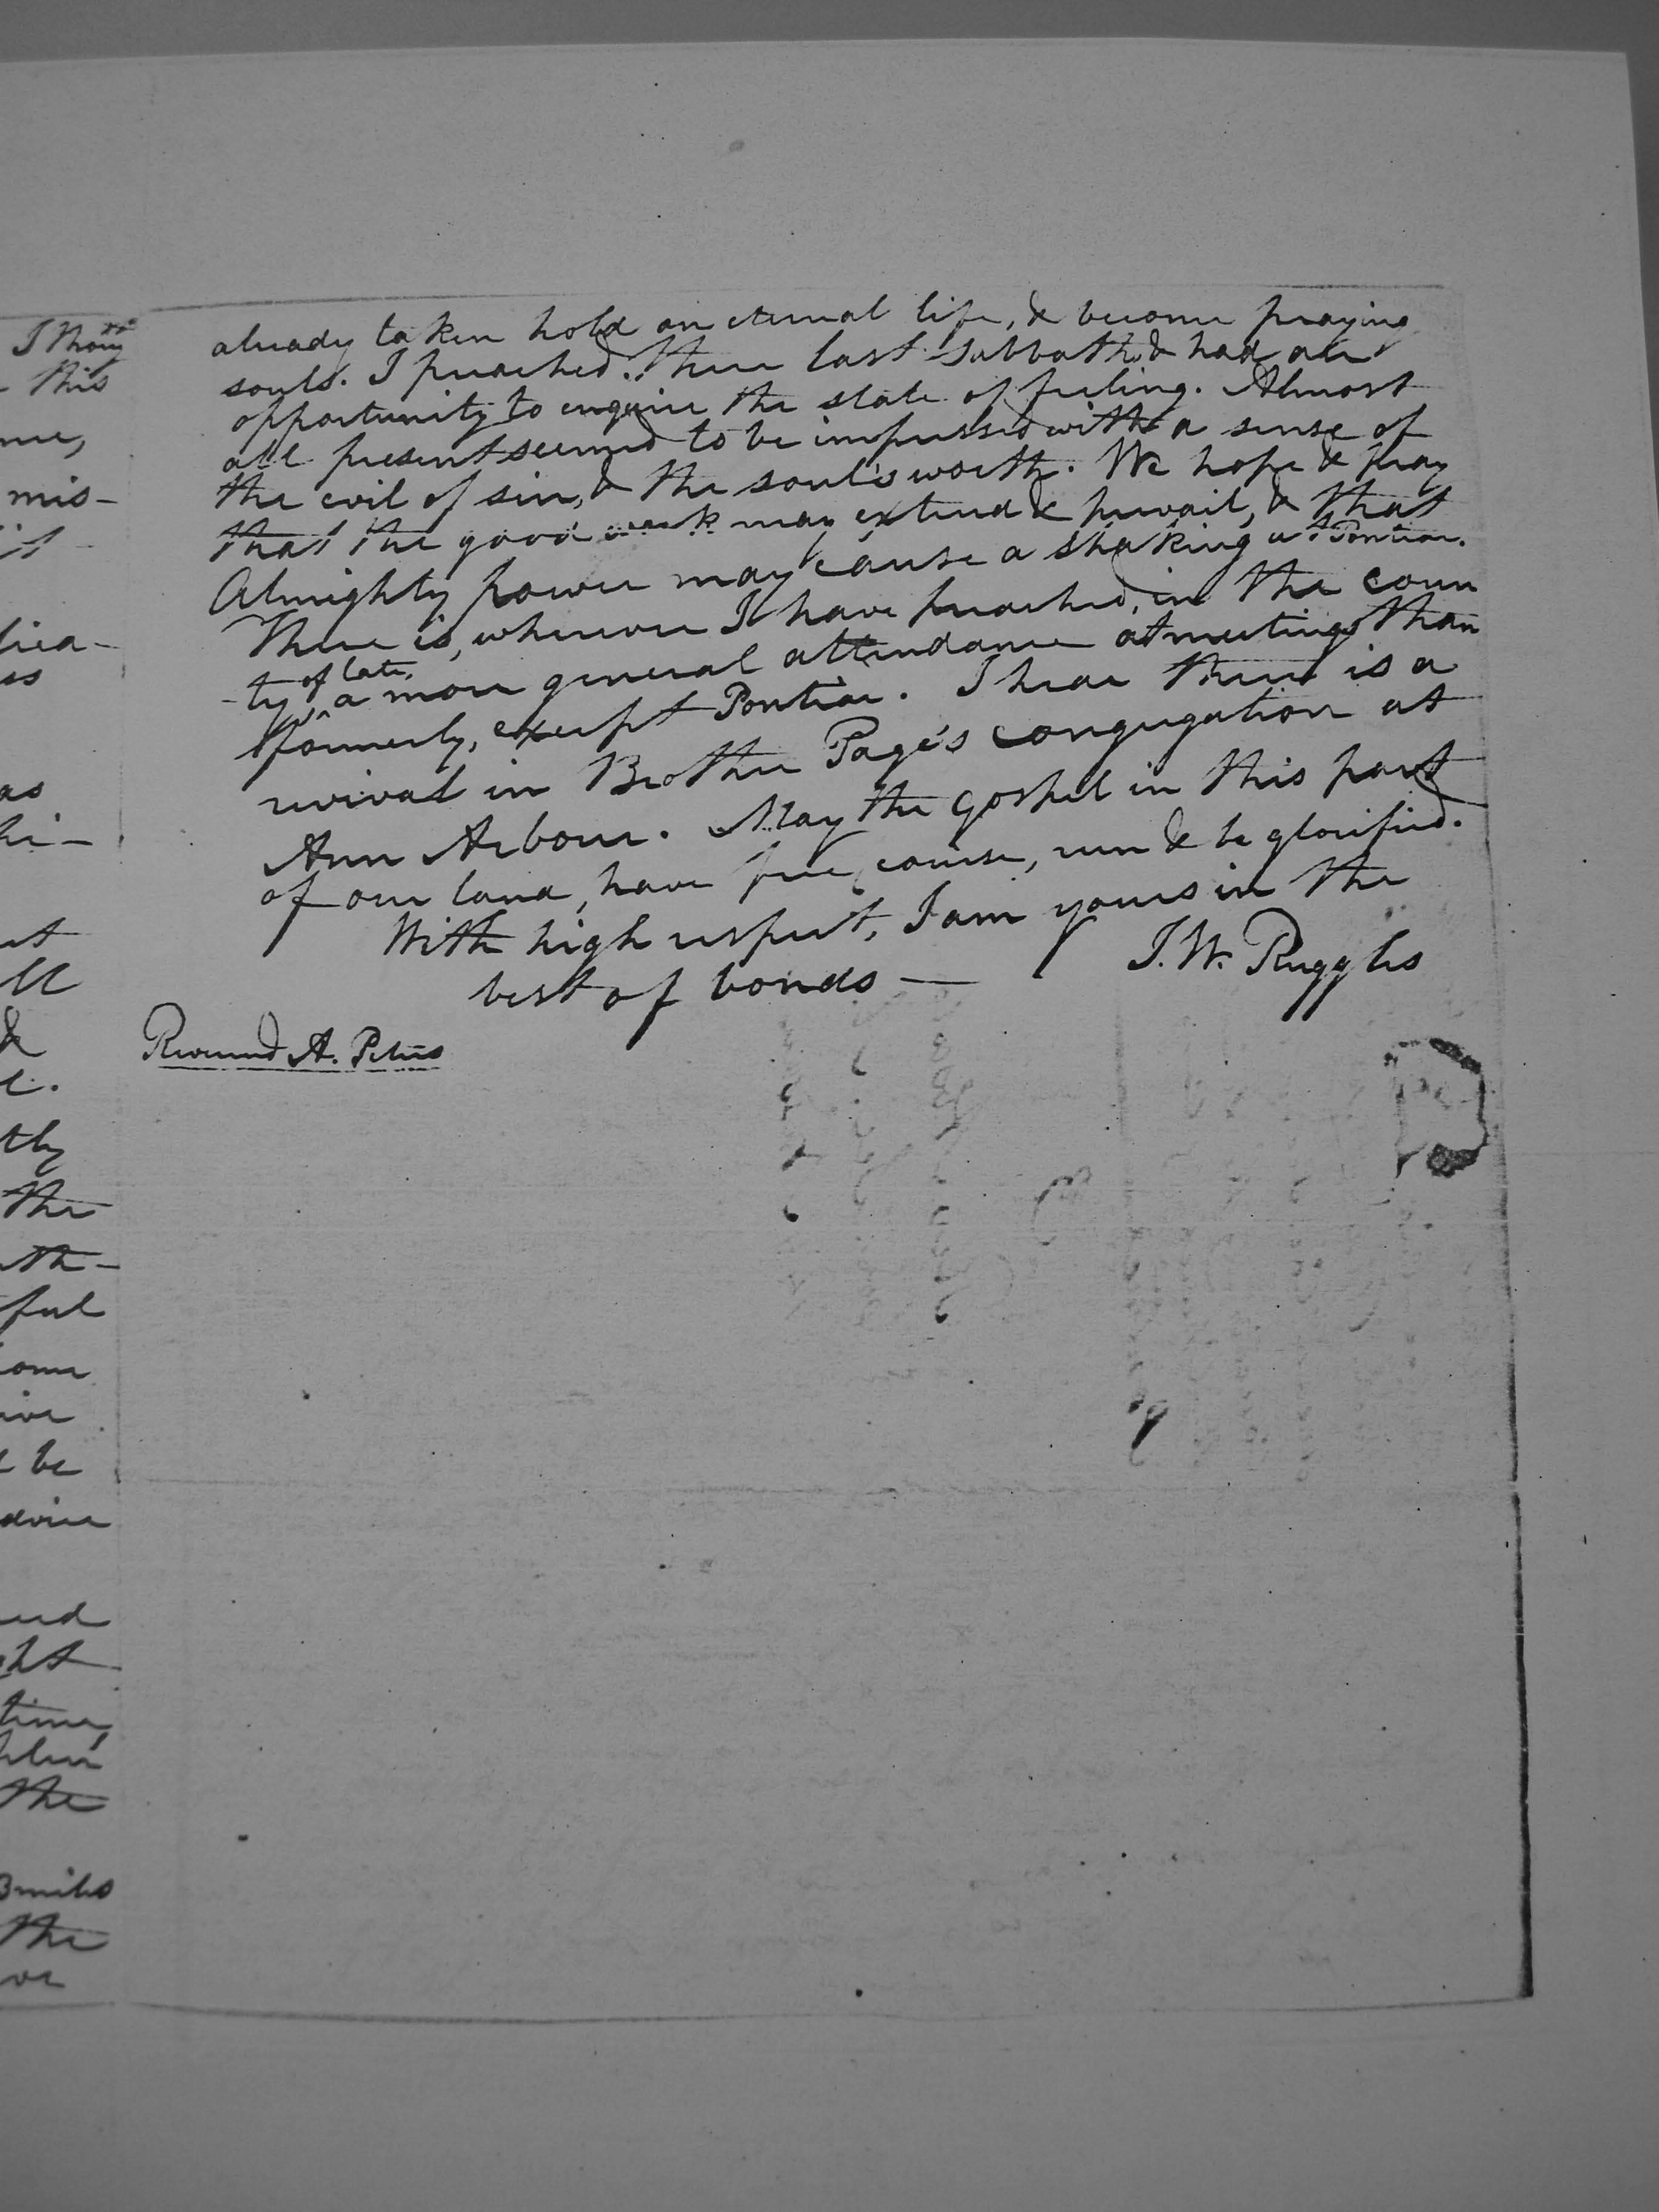 already taken hold on eternal life, & become praying
souls. I preached there last Sabbath & had an
opportunity to enquire the state of feeling. Almost
all present seemed to be impressed with a sense of
the evil of sin, & the soul's worth. We hope & pray
that the good work may extend & prevail, & that
Almighty power may cause a shaking at Pontiac.
There is, wherever I have preached, in the coun
-ty of late, a more general attendance at meetings than
formerly, except Pontiac. I hear there is a
revival in Brother Page's congregation at
Ann Arbour. May the gospel in this part
of our land, have free course, run & be glorified.
With high respect, I am yours in the
best of bonds —
I. W. Ruggles
Reverend A. Peters
this
mis-
as
hi-
&
the
ful
be
time,
the
3 miles
the